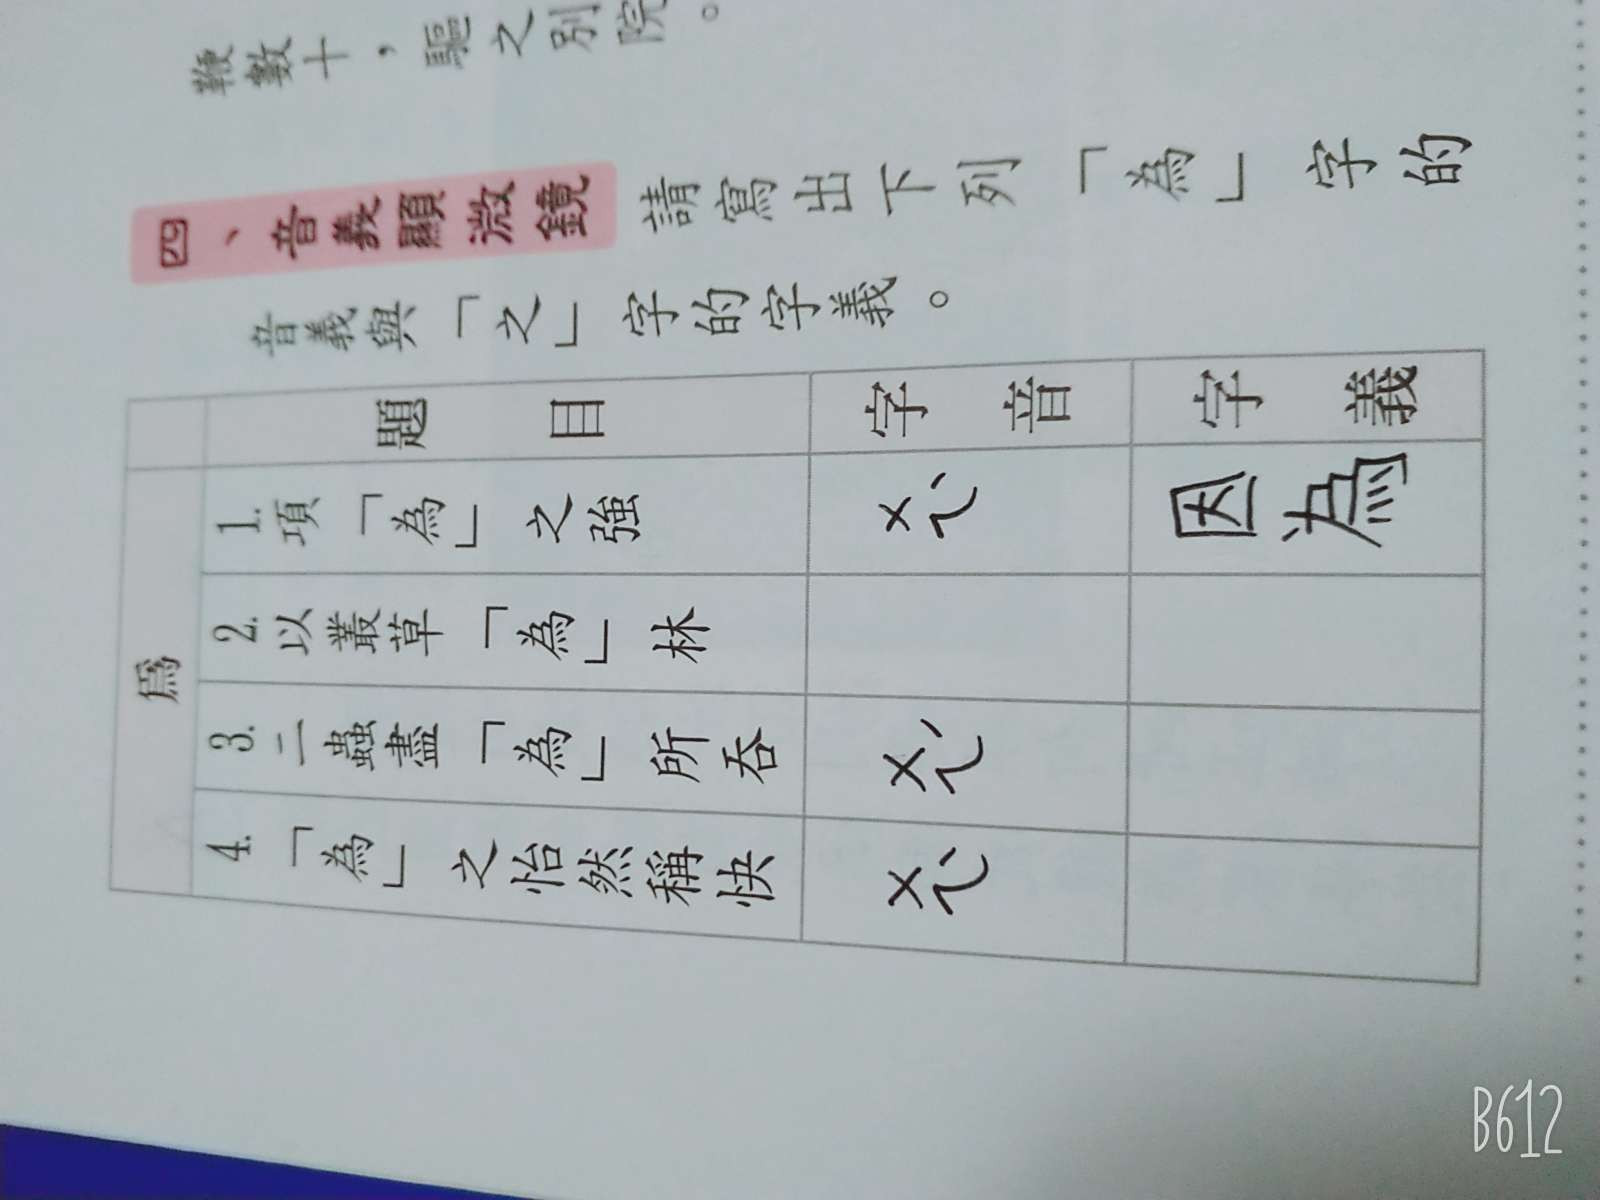 鞭數十，驅之別院。
四、音義顯微鏡 請寫出下列「為」字的
音義與「之」字的字義。
題目 字音 字義
為
1. 項「為」之強 ㄨㄟˋ 因為
2. 以叢草「為」林
3. 二蟲盡「為」所吞 ㄨㄟˊ
4. 「為」之怡然稱快 ㄨㄟˋ
B612